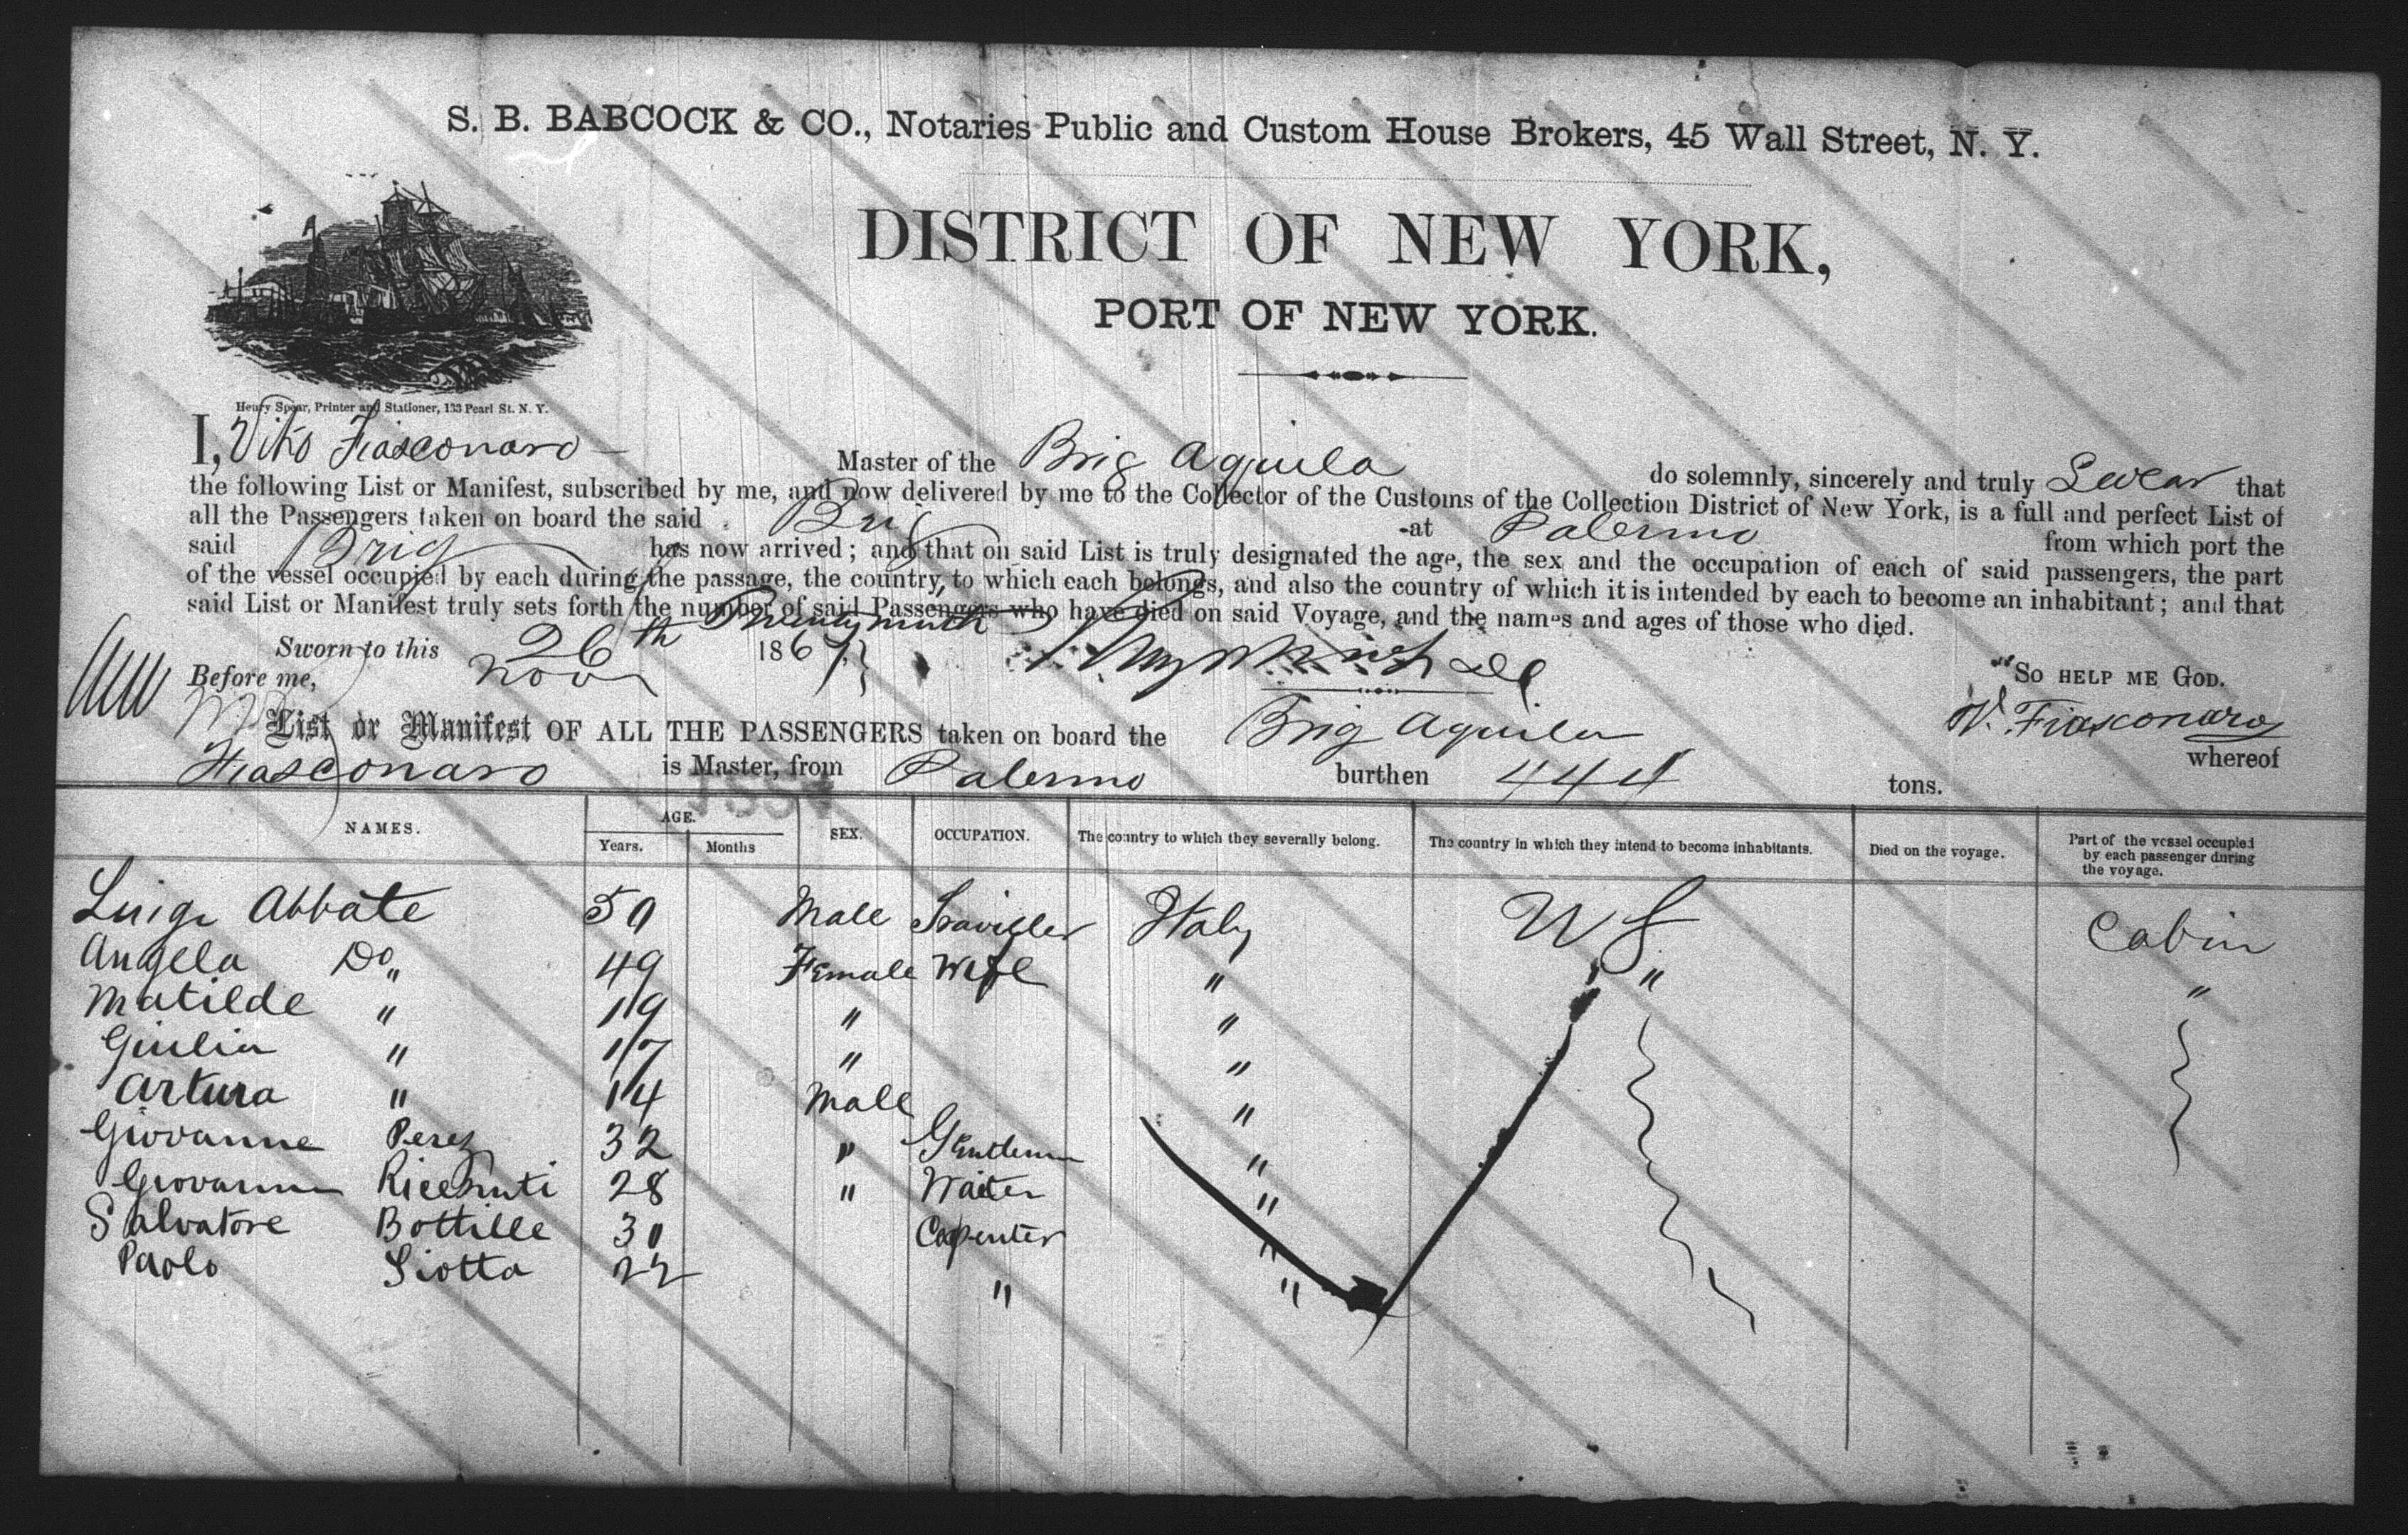 S. B. BABCOCK & CO., Notaries Public and Custom House Brokers, 45 Wall Street, N. Y.
DISTRICT OF NEW YORK,
PORT OF NEW YORK.
Henry Spear, Printer and Stationer, 133 Pearl St. N. Y.
I, Vito Fiasconaro Master of the Brig Aquila do solemnly, sincerely and truly Swear that
the following List or Manifest, subscribed by me, and now delivered by me to the Collector of the Customs of the Collection District of New York, is a full and perfect List of
all the Passengers taken on board the said Brig at Palermo from which port the
said Brig has now arrived; and that on said List is truly designated the age, the sex and the occupation of each of said passengers, the part
of the vessel occupied by each during the passage, the country, to which each belongs, and also the country of which it is intended by each to become an inhabitant; and that
said List or Manifest truly sets forth the number of said Passengers who have died on said Voyage, and the names and ages of those who died.
Sworn to this 26th 1867
Before me, Nov
So HELP ME GOD.
V. Fiasconaro
List or Manifest OF ALL THE PASSENGERS taken on board the Brig Aquila whereof
Fiasconaro is Master, from Palermo burthen 444 tons.
NAMES. AGE. Years. Months SEX. OCCUPATION. The country to which they severally belong. The country in which they intend to become inhabitants. Died on the voyage. Part of the vessel occupied by each passenger during the voyage.
Luigi Abbate 50 Male Traviller Italy US Cabin
Angela Do " 49 Female Wife " " "
Matilde " 19 " "
Giulia " 17 " "
Artura " 14 Male "
Giovanne Perez 32 " Gentleman "
Giovanni 28 " Waiter "
Salvatore Bottille 30 Capenter "
Paolo Liotta 22 " "